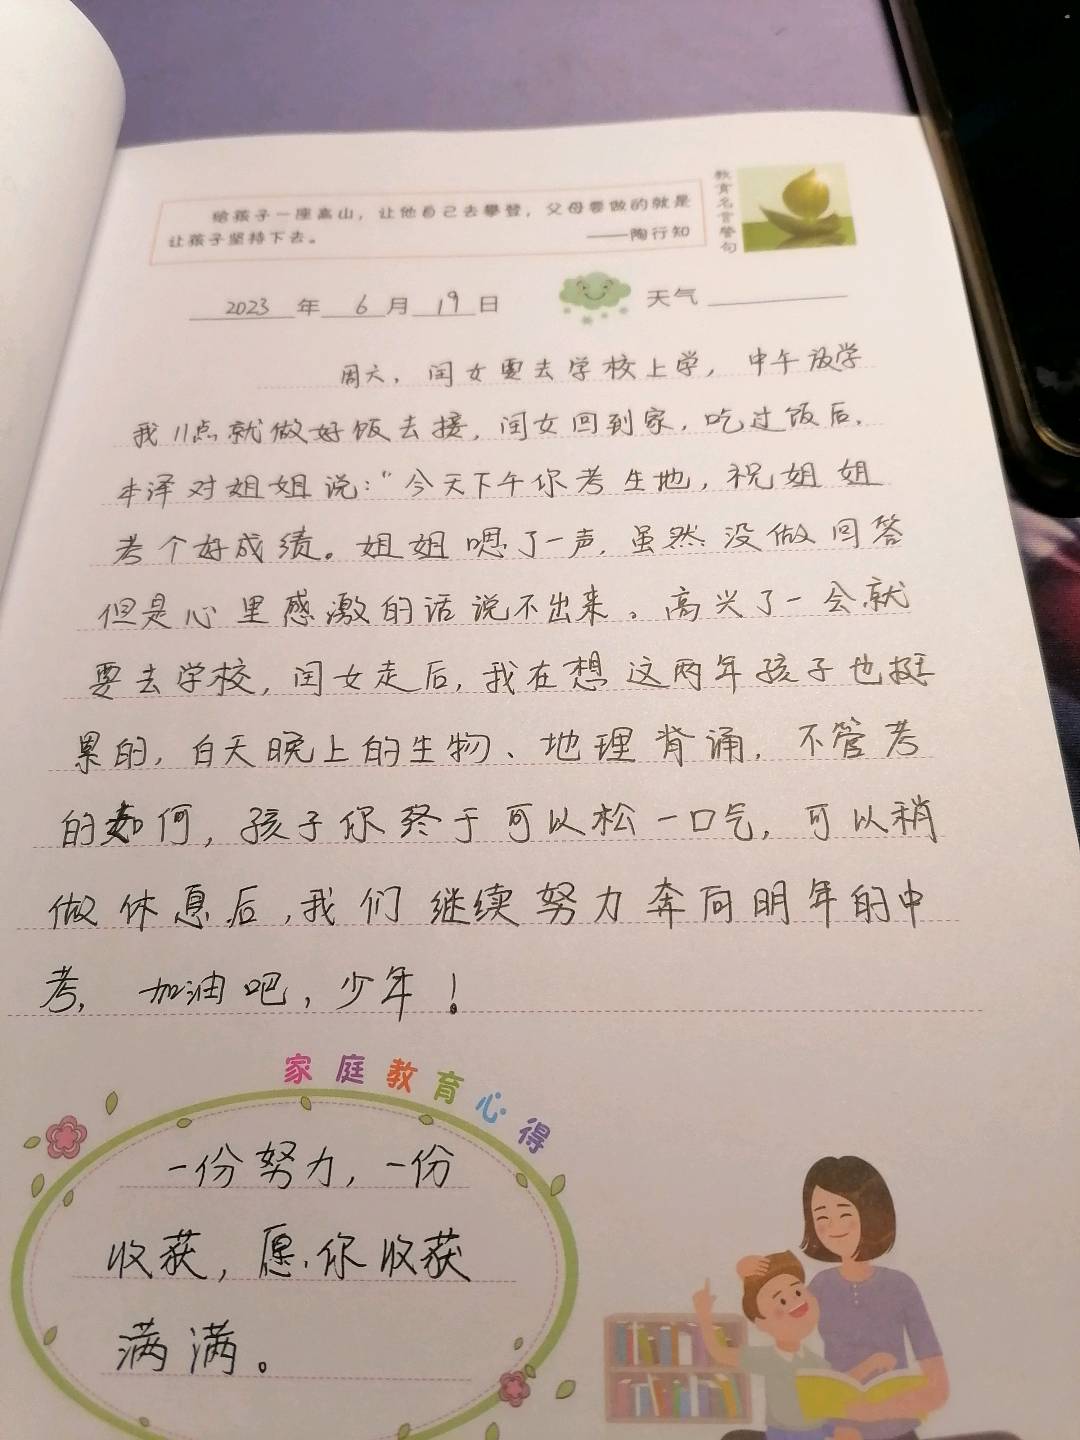 给孩子一座高山，让他自己去攀登，父母要做的就是
让孩子坚持下去。 ——陶行知
教育名言警句
2023年6月19日 天气
周六，闰女要去学校上学，中午放学
我11点就做好饭去接，闰女回到家，吃过饭后，
本泽对姐姐说：“今天下午你考生地，祝姐姐
考个好成绩。姐姐嗯了一声，虽然没做回答
但是心里感激的话说不出来。高兴了一会就
要去学校，闰女走后，我在想这两年孩子也挺
累的，白天晚上的生物、地理背诵，不管考
的如何，孩子你终于可以松一口气，可以稍
做休息后，我们继续努力奔向明年的中
考，加油吧，少年！
家庭教育心得
一份努力，一份
收获，愿你收获
满满。